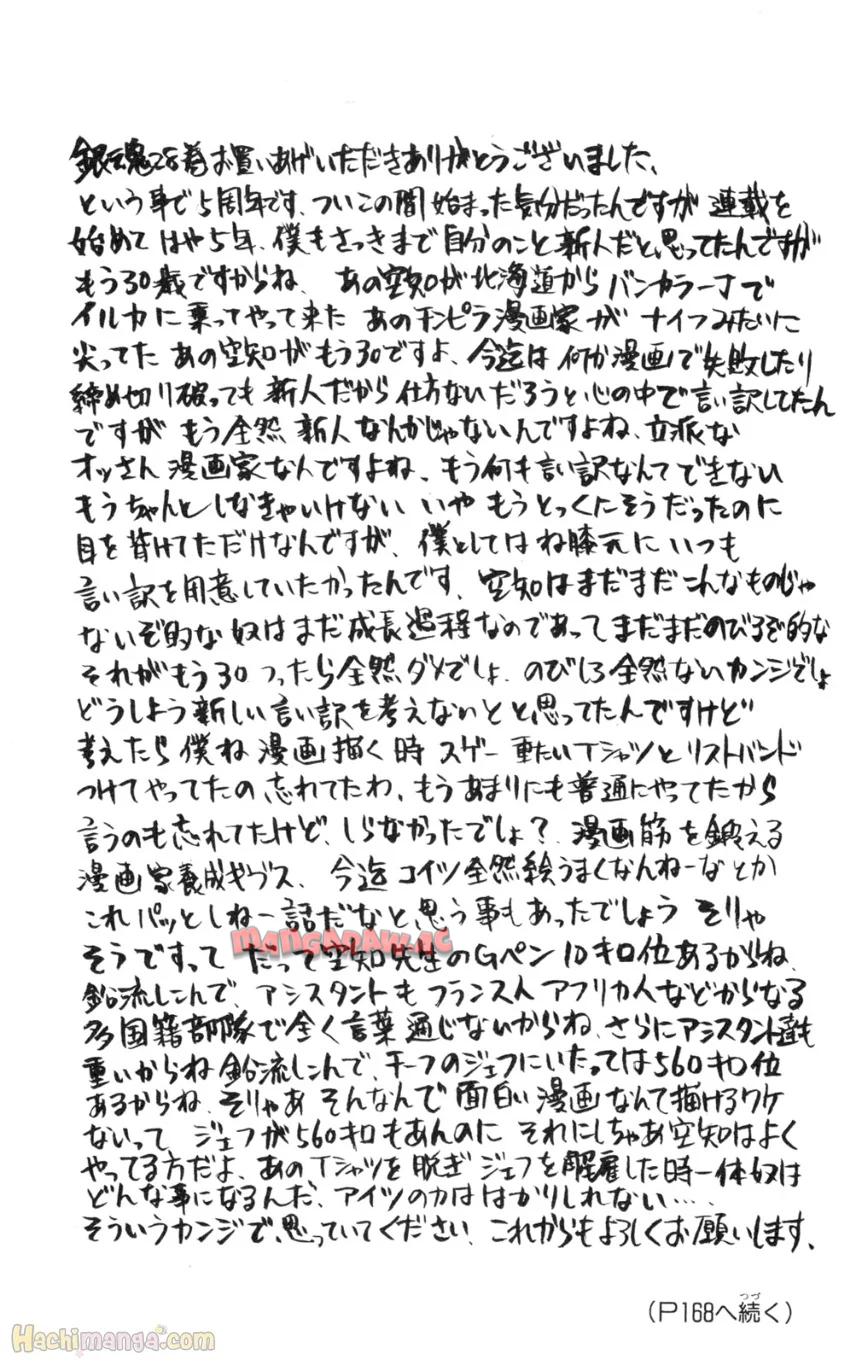 銀魂28巻お買いあげいただきありがとうございました、
という事で5周年です、ついこの間始まった気分だったんですが 連載を
始めてはや5年、僕もさっきまで自分のこと新人だと思ってたんですが
もう30歳ですからね、あの空知が北海道からバンカラ一丁で
イルカに乗ってやって来た あのチンピラ漫画家が ナイフみたいに
尖ってた あの空知がもう30ですよ、今迄は何か漫画で失敗したり
締め切り破っても 新人だから仕方ないだろうと心の中で言い訳してたん
ですが もう全然新人なんかじゃないんですよね、立派な
オッさん漫画家なんですよね、もう何も言い訳なんてできない
もうちゃんとしなきゃいけない いや もうとっくにそうだったのに
目を背けてただけなんですが、僕としてはね膝元にいつも
言い訳を用意していたかったんです、空知はまだまだこんなものじゃ
ないぞ的な 奴はまだ成長過程なのであってまだまだのびるぞ的な
それがもう30つったら全然ダメでしょ、のびしろ全然ないカンジでしょ
どうしよう新しい言い訳を考えないとと思ってたんですけど
考えたら僕ね漫画描く時 スゲー重たいTシャツとリストバンド
つけてやってたの忘れてたわ、もうあまりにも普通にやってたから
言うのも忘れてたけど、しらなかったでしょ?漫画筋を鍛える
漫画家養成ギプス、今迄コイツ全然絵うまくなんねーなとか
これパッとしねー話だなと思う事もあったでしょう そりゃ
MANGARAW.AC
そうですって だって空知先生のGペン10キロ位あるからね、
鉛流しこんで、アシスタントもフランス人アフリカ人などからなる
多国籍部隊で全く言葉通じないからね、さらにアシスタント達も
重いからね鉛流しこんで、チーフのジェフにいたっては560キロ位
あるからね、そりゃあそんなんで面白い漫画なんて描けるワケ
ないって ジェフが560キロもあんのに それにしちゃあ空知はよく
やってる方だよ、あのTシャツを脱ぎジェフを解雇した時一体奴は
どんな事になるんだ、アイツの力ははかりしれない…、
そういうカンジで思っていてください、これからもよろしくお願いします、
(P168へ続く)
つづ
Hachimanga.com